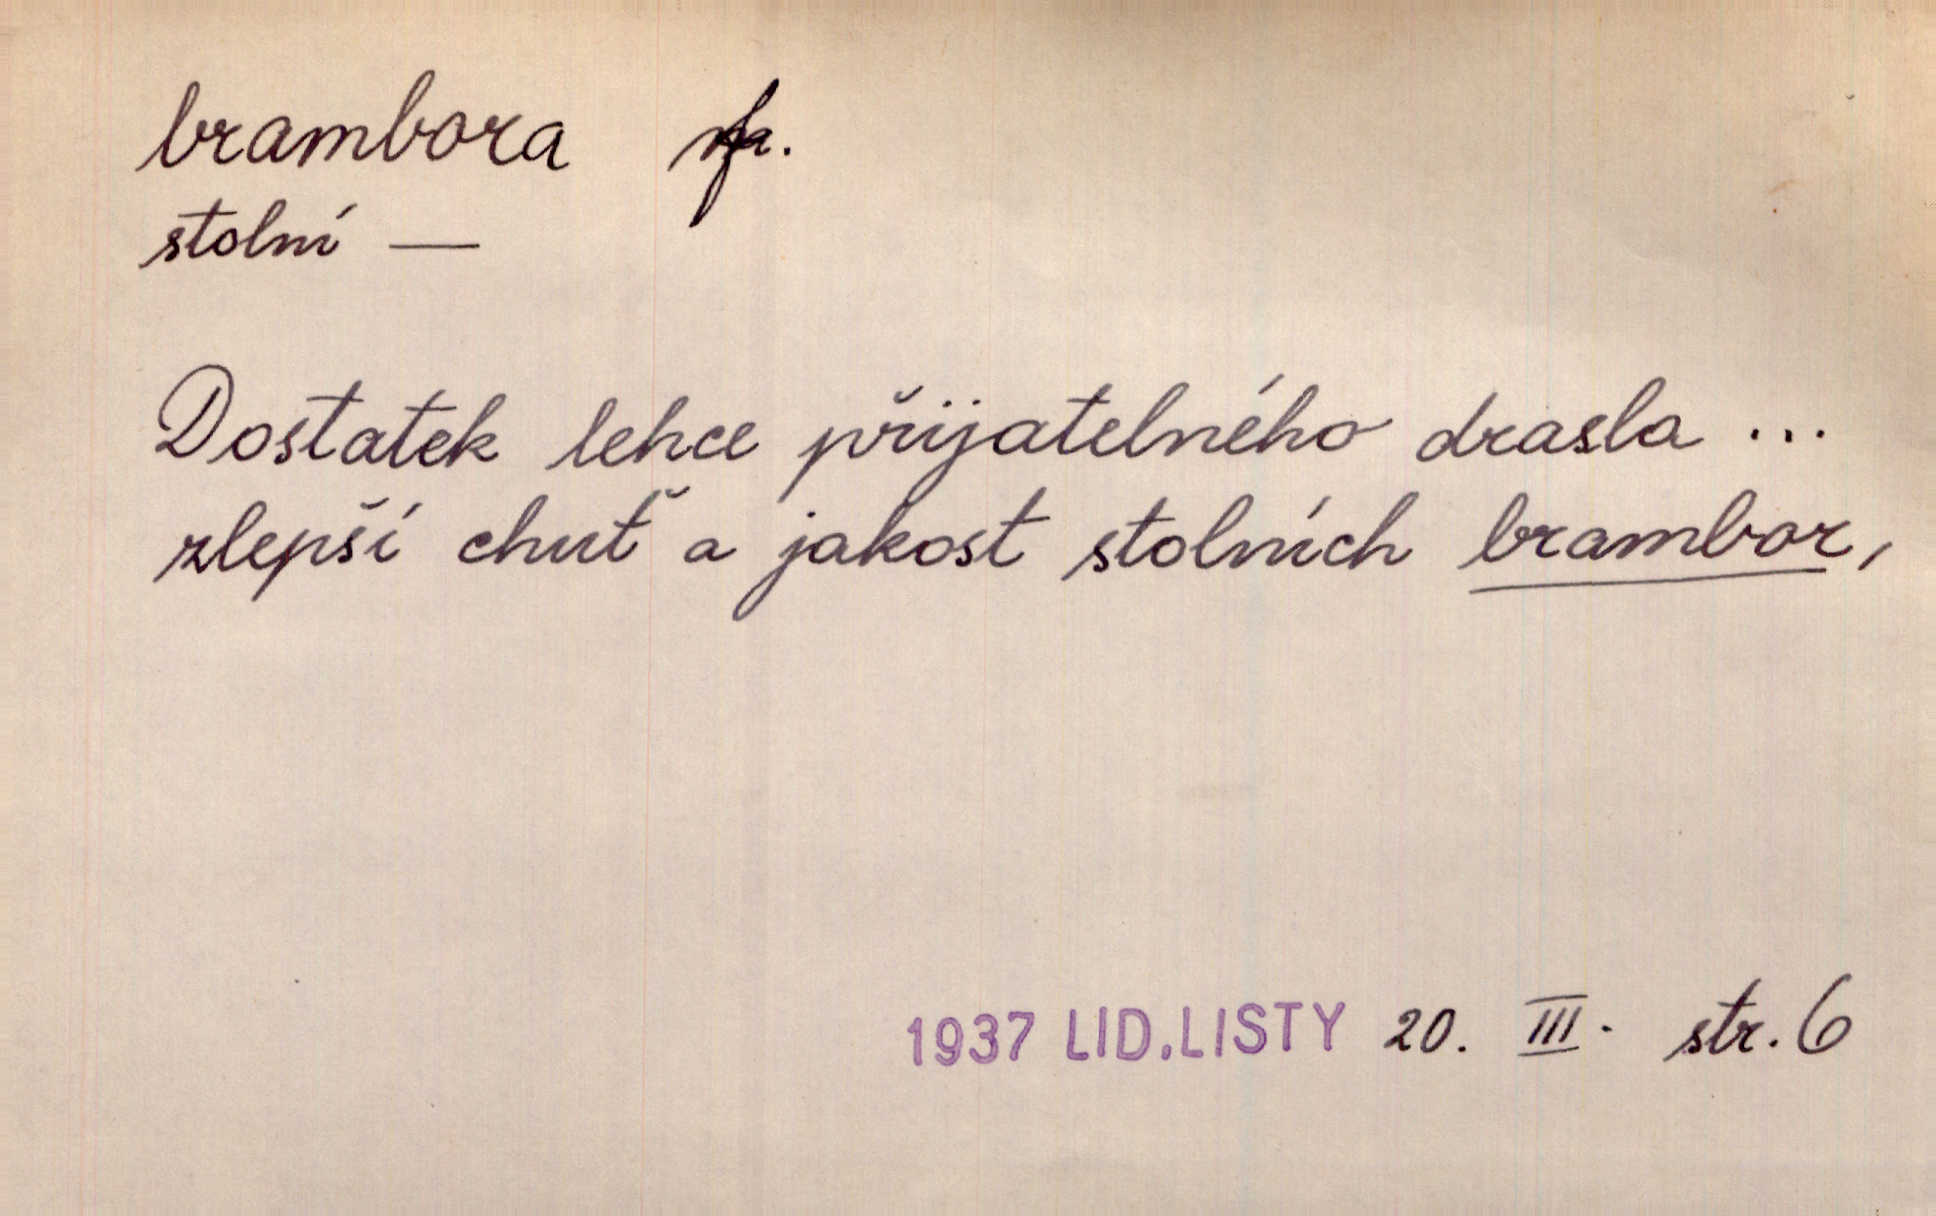 brambora f.
stolní —
Dostatek lehce přijatelného drasla ...
zlepší chuť a jakost stolních brambor,
1937 LID.LISTY 20. III. str. 6